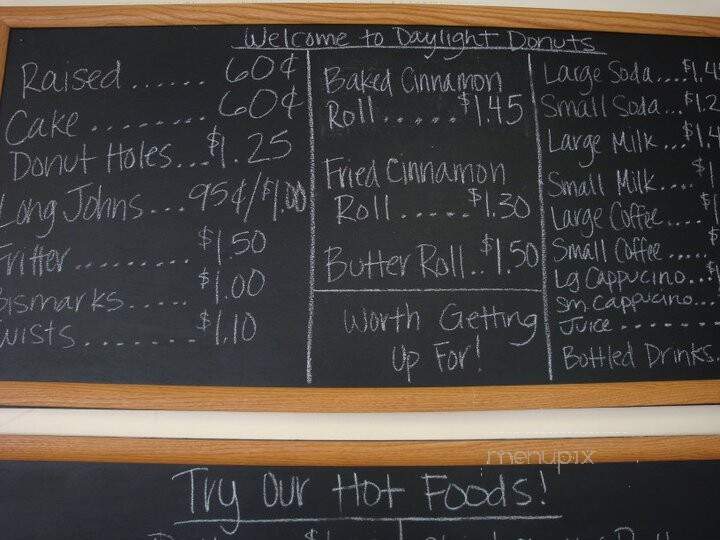 Welcome to Daylight Donuts
Raised ...... 60¢
Cake ........ 60¢
Donut Holes... $1.25
Long Johns... 95¢/$1.00
Fritter ......... $1.50
Bismarks ..... $1.00
Twists ........ $1.10
Baked Cinnamon
Roll ..... $1.45
Fried Cinnamon
Roll ..... $1.30
Butter Roll.. $1.50
Worth Getting
Up For!
Large Soda.... $1.4
Small Soda... $1.2
Large Milk... $1.4
Small Milk.... $1
Large Coffee.... $1
Small Coffee .....
Lg Cappucino... $1
Sm. Cappucino...
Juice ........
Bottled Drinks.
menupix
Try Our Hot Foods!